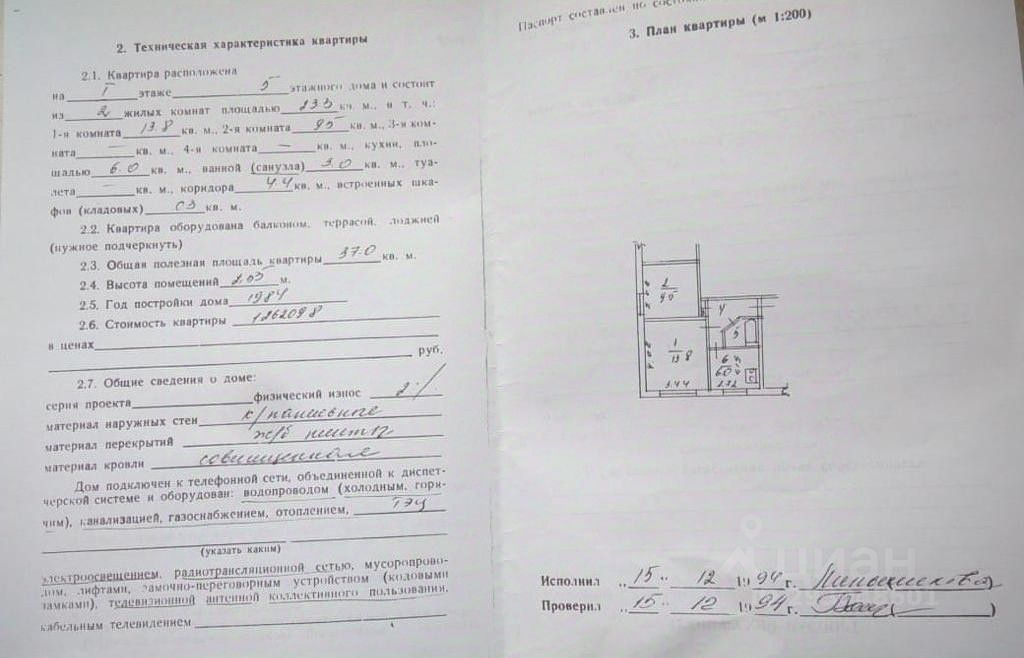 2. Техническая характеристика квартиры
2.1. Квартира расположена
на I этаже 5 этажного дома и состоит
из 2 жилых комнат площадью 23.3 кв. м., в т. ч.:
1-я комната 13.8 кв. м., 2-я комната 9.5 кв. м., 3-я ком-
ната — кв. м., 4-я комната — кв. м., кухни, пло-
щадью 6.0 кв. м., ванной (санузла) 3.0 кв. м., туа-
лета — кв. м., коридора 4.4 кв. м., встроенных шка-
фов (кладовых) 0.3 кв. м.
2.2. Квартира оборудована балконом, террасой, лоджией
(нужное подчеркнуть)
2.3. Общая полезная площадь квартиры 37.0 кв. м.
2.4. Высота помещений м.
2.5. Год постройки дома 1984
2.6. Стоимость квартиры 1262098
в ценах
руб.
2.7. Общие сведения о доме:
серия проекта физический износ 2%
материал наружных стен к/панельные
материал перекрытий ж/б плиты
материал кровли совмещенная
Дом подключен к телефонной сети, объединенной к диспет-
черской системе и оборудован: водопроводом (холодным, горя-
чим), канализацией, газоснабжением, отоплением, ТЭЦ
(указать каким)
электроосвещением, радиотрансляционной сетью, мусоропрово-
дом, лифтами, замочно-переговорным устройством (кодовыми
замками), телевизионной антенной коллективного пользования,
кабельным телевидением
Паспорт составлен по
3. План квартиры (м 1:200)
2
9.5
4
5
1
13.8
6
6.0
3.44
2.32
циан
Исполнил „15" 12 1994 г.
Проверил „15" 12 1994 г. )